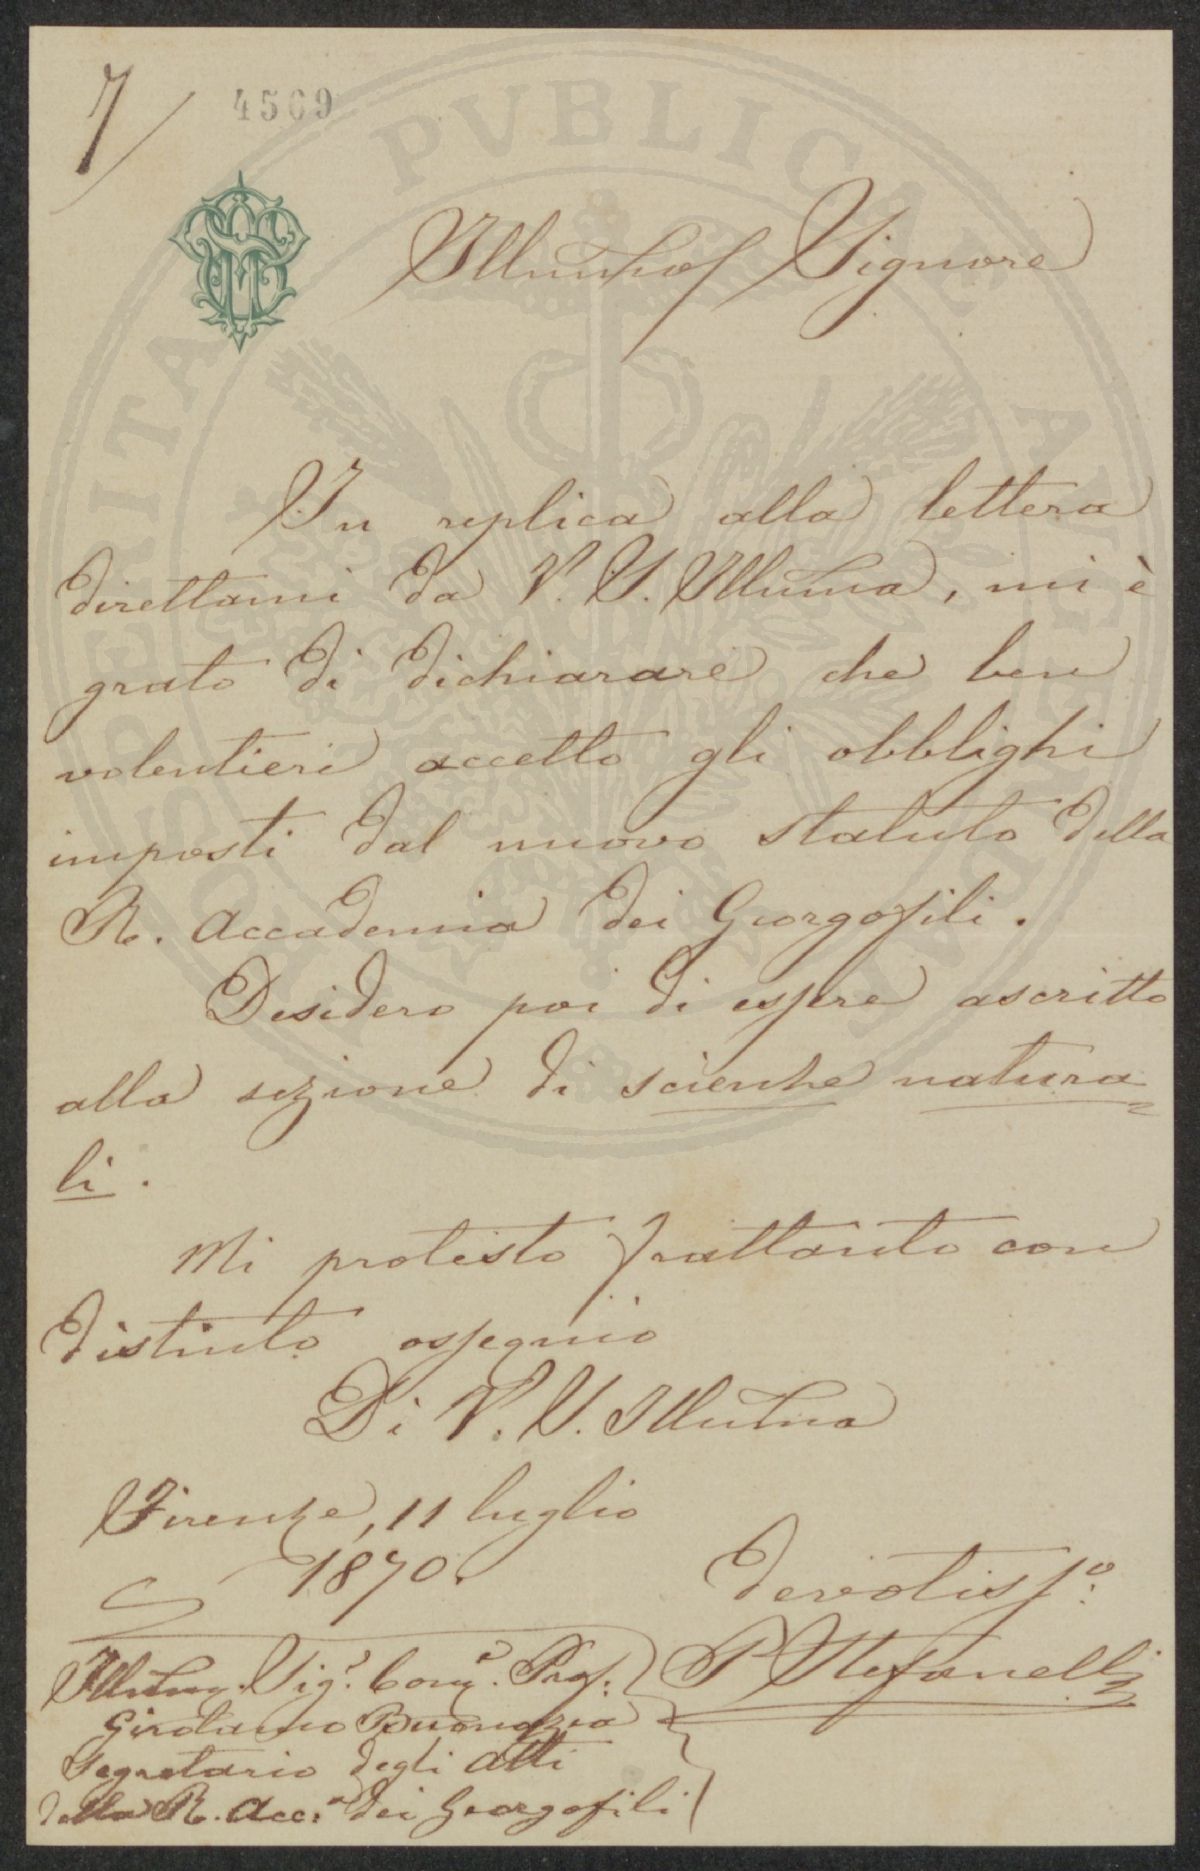 7/
4569
PROSPERITATI PVBLICAE AVGENDAE
Illustris. Signore
In replica alla lettera
direttami da V. S. Illustma, mi è
grato di dichiarare che ben
volentieri accetto gli obblighi
imposti dal nuovo statuto della
R. Accademia dei Georgofili.
Desidero poi di essere ascritto
alla sezione di scienze natura
li.
Mi protesto frattanto con
distinto ossequio
Di V. S. Illustma
Firenze, 11 luglio
1870.
devotisso.
P Stefanelli
Sigr. Prof.
Girolamo Buonazia
Segretario degli Atti
della R. Acc.a dei Georgofili